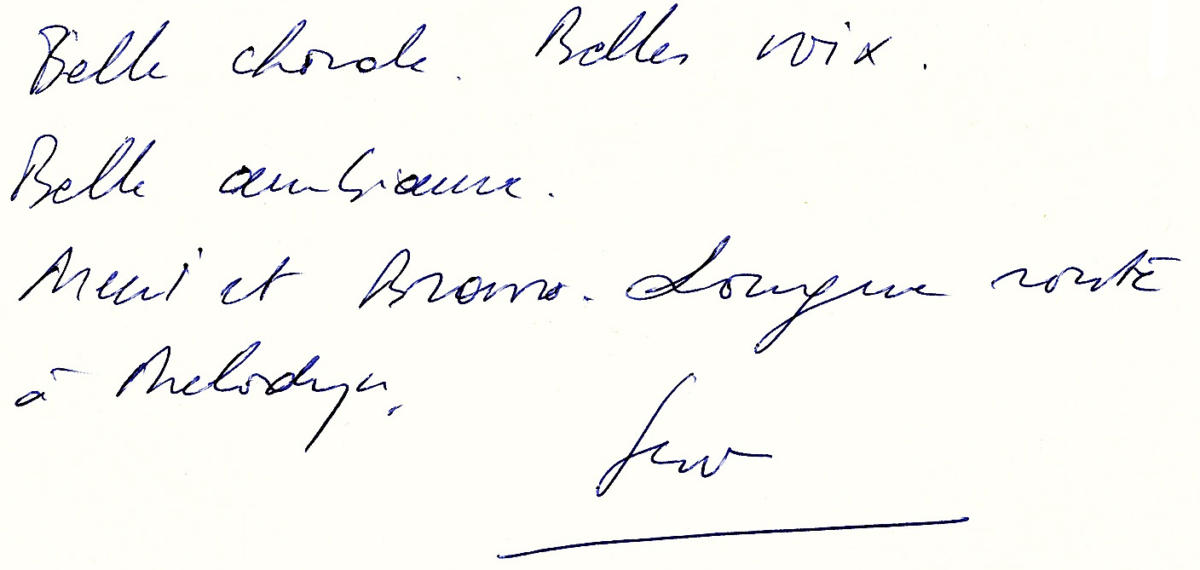 Belle chorale. Belles voix.
Belle ambiance.
Merci et Bravo. Longue route
à Melodya.